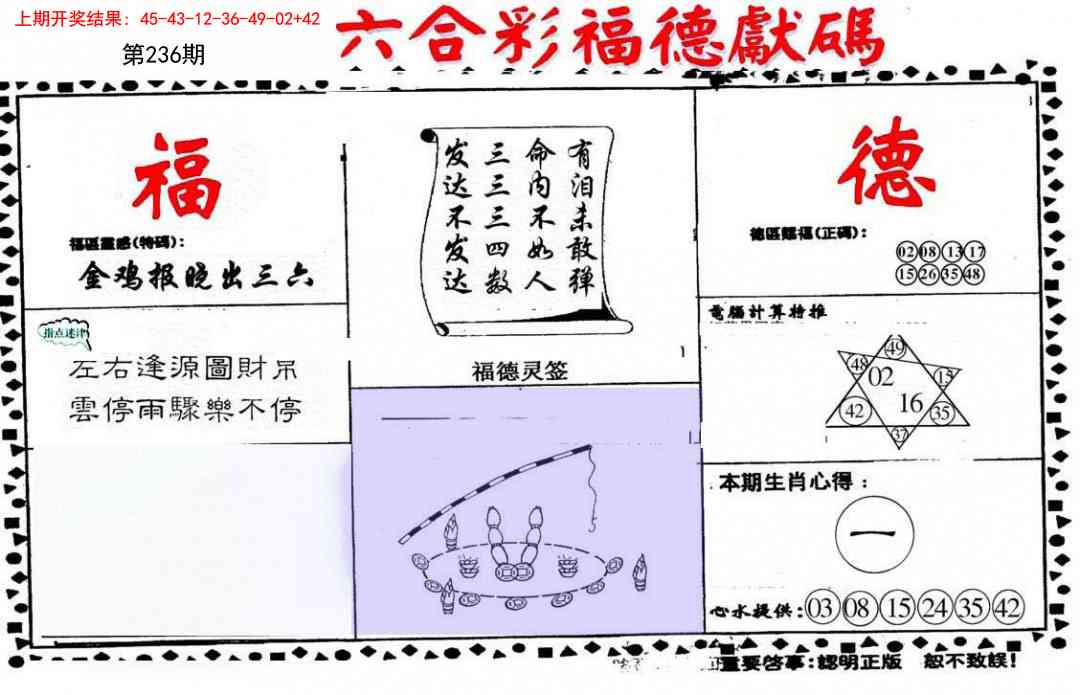 上期开奖结果: 45-43-12-36-49-02+42
第236期
六合彩福德獻碼
福
福區靈感(特碼):
金鸡报晓出三六
指点迷津
左右逢源圖財帛
雲停雨驟樂不停
有泪未敢弹
命内不如人
三三三四数
发达不发达
福德灵签
德
德區賜福(正碼):
02 08 13 17
15 26 35 48
電腦計算特推
49
48 02 15
42 16 35
37
本期生肖心得:
一
心水提供: 03 08 15 24 35 42
重要啓事:認明正版 恕不致誤!